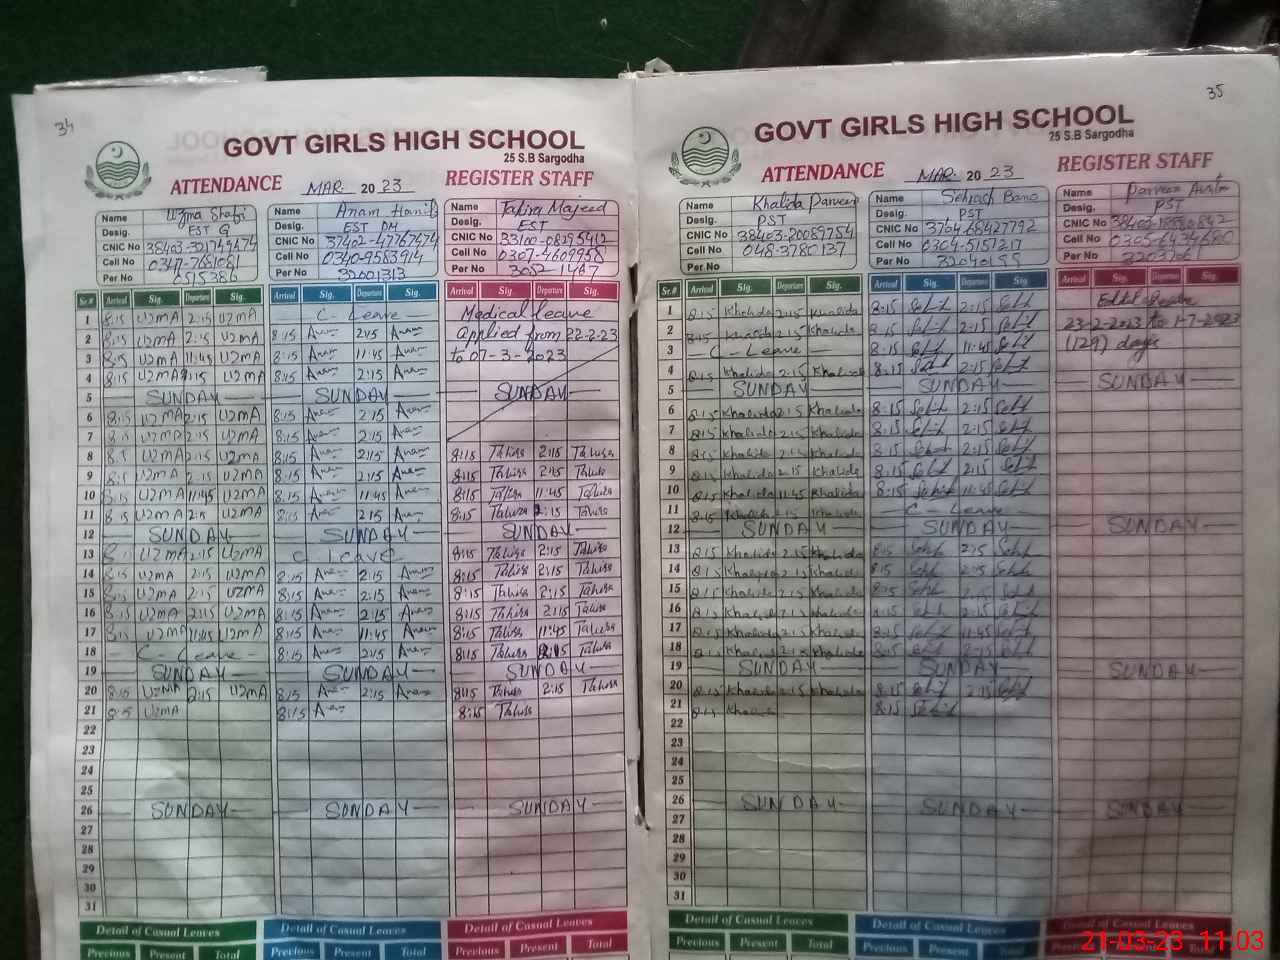 34
GOVT GIRLS HIGH SCHOOL
25 S.B Sargodha
ATTENDANCE MAR 2023 REGISTER STAFF
Name Uzma Shafi
Desig. EST G
CNIC No
Cell No 0347-7681081
Per No
Name Anam Hanif
Desig. EST DM
CNIC No 37402-47767474
Cell No 0340-9583914
Per No 32001313
Name Tahira Majeed
Desig. EST
CNIC No 33100-08295412
Cell No 0307-4609958
Per No
Sr.# Arrival Sig. Departure Sig. Arrival Sig. Departure Sig. Arrival Sig. Departure Sig.
1 8:15 UZMA 2:15 UZMA C - Leave Medical leave
2 8:15 UZMA 2:15 UZMA 8:15 Anam 2:15 Anam Applied from 22-2-23
3 8:15 UZMA 11:45 UZMA 8:15 Anam 11:45 Anam to 07-3-2023
4 8:15 UZMA 2:15 UZMA 8:15 Anam 2:15 Anam
5 SUNDAY SUNDAY SUNDAY
6 8:15 UZMA 2:15 UZMA 8:15 Anam 2:15 Anam
7 8:15 UZMA 2:15 UZMA 8:15 Anam 2:15 Anam
8 8:15 UZMA 2:15 UZMA 8:15 Anam 2:15 Anam 8:15 Tahira 2:15 Tahira
9 8:15 UZMA 2:15 UZMA 8:15 Anam 2:15 Anam 8:15 Tahira 2:15 Tahira
10 8:15 UZMA 11:45 UZMA 8:15 Anam 11:45 Anam 8:15 Tahira 11:45 Tahira
11 8:15 UZMA 2:15 UZMA 8:15 Anam 2:15 Anam 8:15 Tahira 2:15 Tahira
12 SUNDAY SUNDAY SUNDAY
13 UZMA 2:15 UZMA C Leave 8:15 Tahira 2:15 Tahira
14 8:15 UZMA 2:15 UZMA 8:15 Anam 2:15 Anam 8:15 Tahira 2:15 Tahira
15 8:15 UZMA 2:15 UZMA 8:15 Anam 2:15 Anam 8:15 Tahira 2:15 Tahira
16 8:15 UZMA 2:15 UZMA 8:15 Anam 2:15 Anam 8:15 Tahira 2:15 Tahira
17 8:15 UZMA 11:45 UZMA 8:15 Anam 11:45 Anam 8:15 Tahira 11:45 Tahira
18 - C - Leave - 8:15 Anam 2:15 Anam 8:15 Tahira 2:15 Tahira
19 SUNDAY SUNDAY SUNDAY
20 8:15 UZMA 2:15 UZMA 8:15 Anam 2:15 Anam 8:15 Tahira 2:15 Tahira
21 8:15 UZMA 8:15 Anam 8:15 Tahira
22
23
24
25
26 SUNDAY SUNDAY SUNDAY
27
28
29
30
31
Detail of Casual Leaves Detail of Casual Leaves Detail of Casual Leaves
Previous Present Total Previous Present Total Previous Present Total
35
GOVT GIRLS HIGH SCHOOL
25 S.B Sargodha
ATTENDANCE MAR 2023 REGISTER STAFF
Name Khalida Parveen
Desig. PST
CNIC No 38403-20089754
Cell No 048-3780137
Per No
Name Bano
Desig. PST
CNIC No
Cell No 0304-5157217
Per No
Name Parveen
Desig. PST
CNIC No
Cell No
Per No
Sr.# Arrival Sig. Departure Sig. Arrival Sig. Departure Sig. Arrival Sig. Departure Sig.
1 8:15 Khalida 2:15 Khalida 8:15 2:15 leave
2 8:15 Khalida 2:15 Khalida 8:15 2:15 23-2-2023 to 1-7-2023
3 - C - Leave 8:15 11:45 (129) days
4 8:15 Khalida 2:15 Khalida 8:15 2:15
5 SUNDAY SUNDAY SUNDAY
6 8:15 Khalida 2:15 Khalida 8:15 2:15
7 8:15 Khalida 2:15 Khalida 8:15 2:15
8 8:15 Khalida 2:15 Khalida 8:15 2:15
9 8:15 Khalida 2:15 Khalida 8:15 2:15
10 8:15 Khalida 11:45 Khalida 8:15 11:45
11 8:15 Khalida 2:15 Khalida - C - Leave
12 SUNDAY SUNDAY SUNDAY
13 8:15 Khalida 2:15 Khalida 8:15 2:15
14 8:15 Khalida 2:15 Khalida 8:15 2:15
15 8:15 Khalida 2:15 Khalida 8:15 2:15
16 8:15 Khalida 2:15 Khalida 8:15 2:15
17 8:15 Khalida 2:15 Khalida 8:15 11:45
18 8:15 Khalida 2:15 Khalida 8:15 2:15
19 SUNDAY SUNDAY SUNDAY
20 8:15 Khalida 2:15 Khalida 8:15 2:15
21 8:15 Khalida 8:15
22
23
24
25
26 SUNDAY SUNDAY SUNDAY
27
28
29
30
31
Detail of Casual Leaves Detail of Casual Leaves Detail of Casual Leaves
Previous Present Total Previous Present Total Previous
21-03-23 11:03